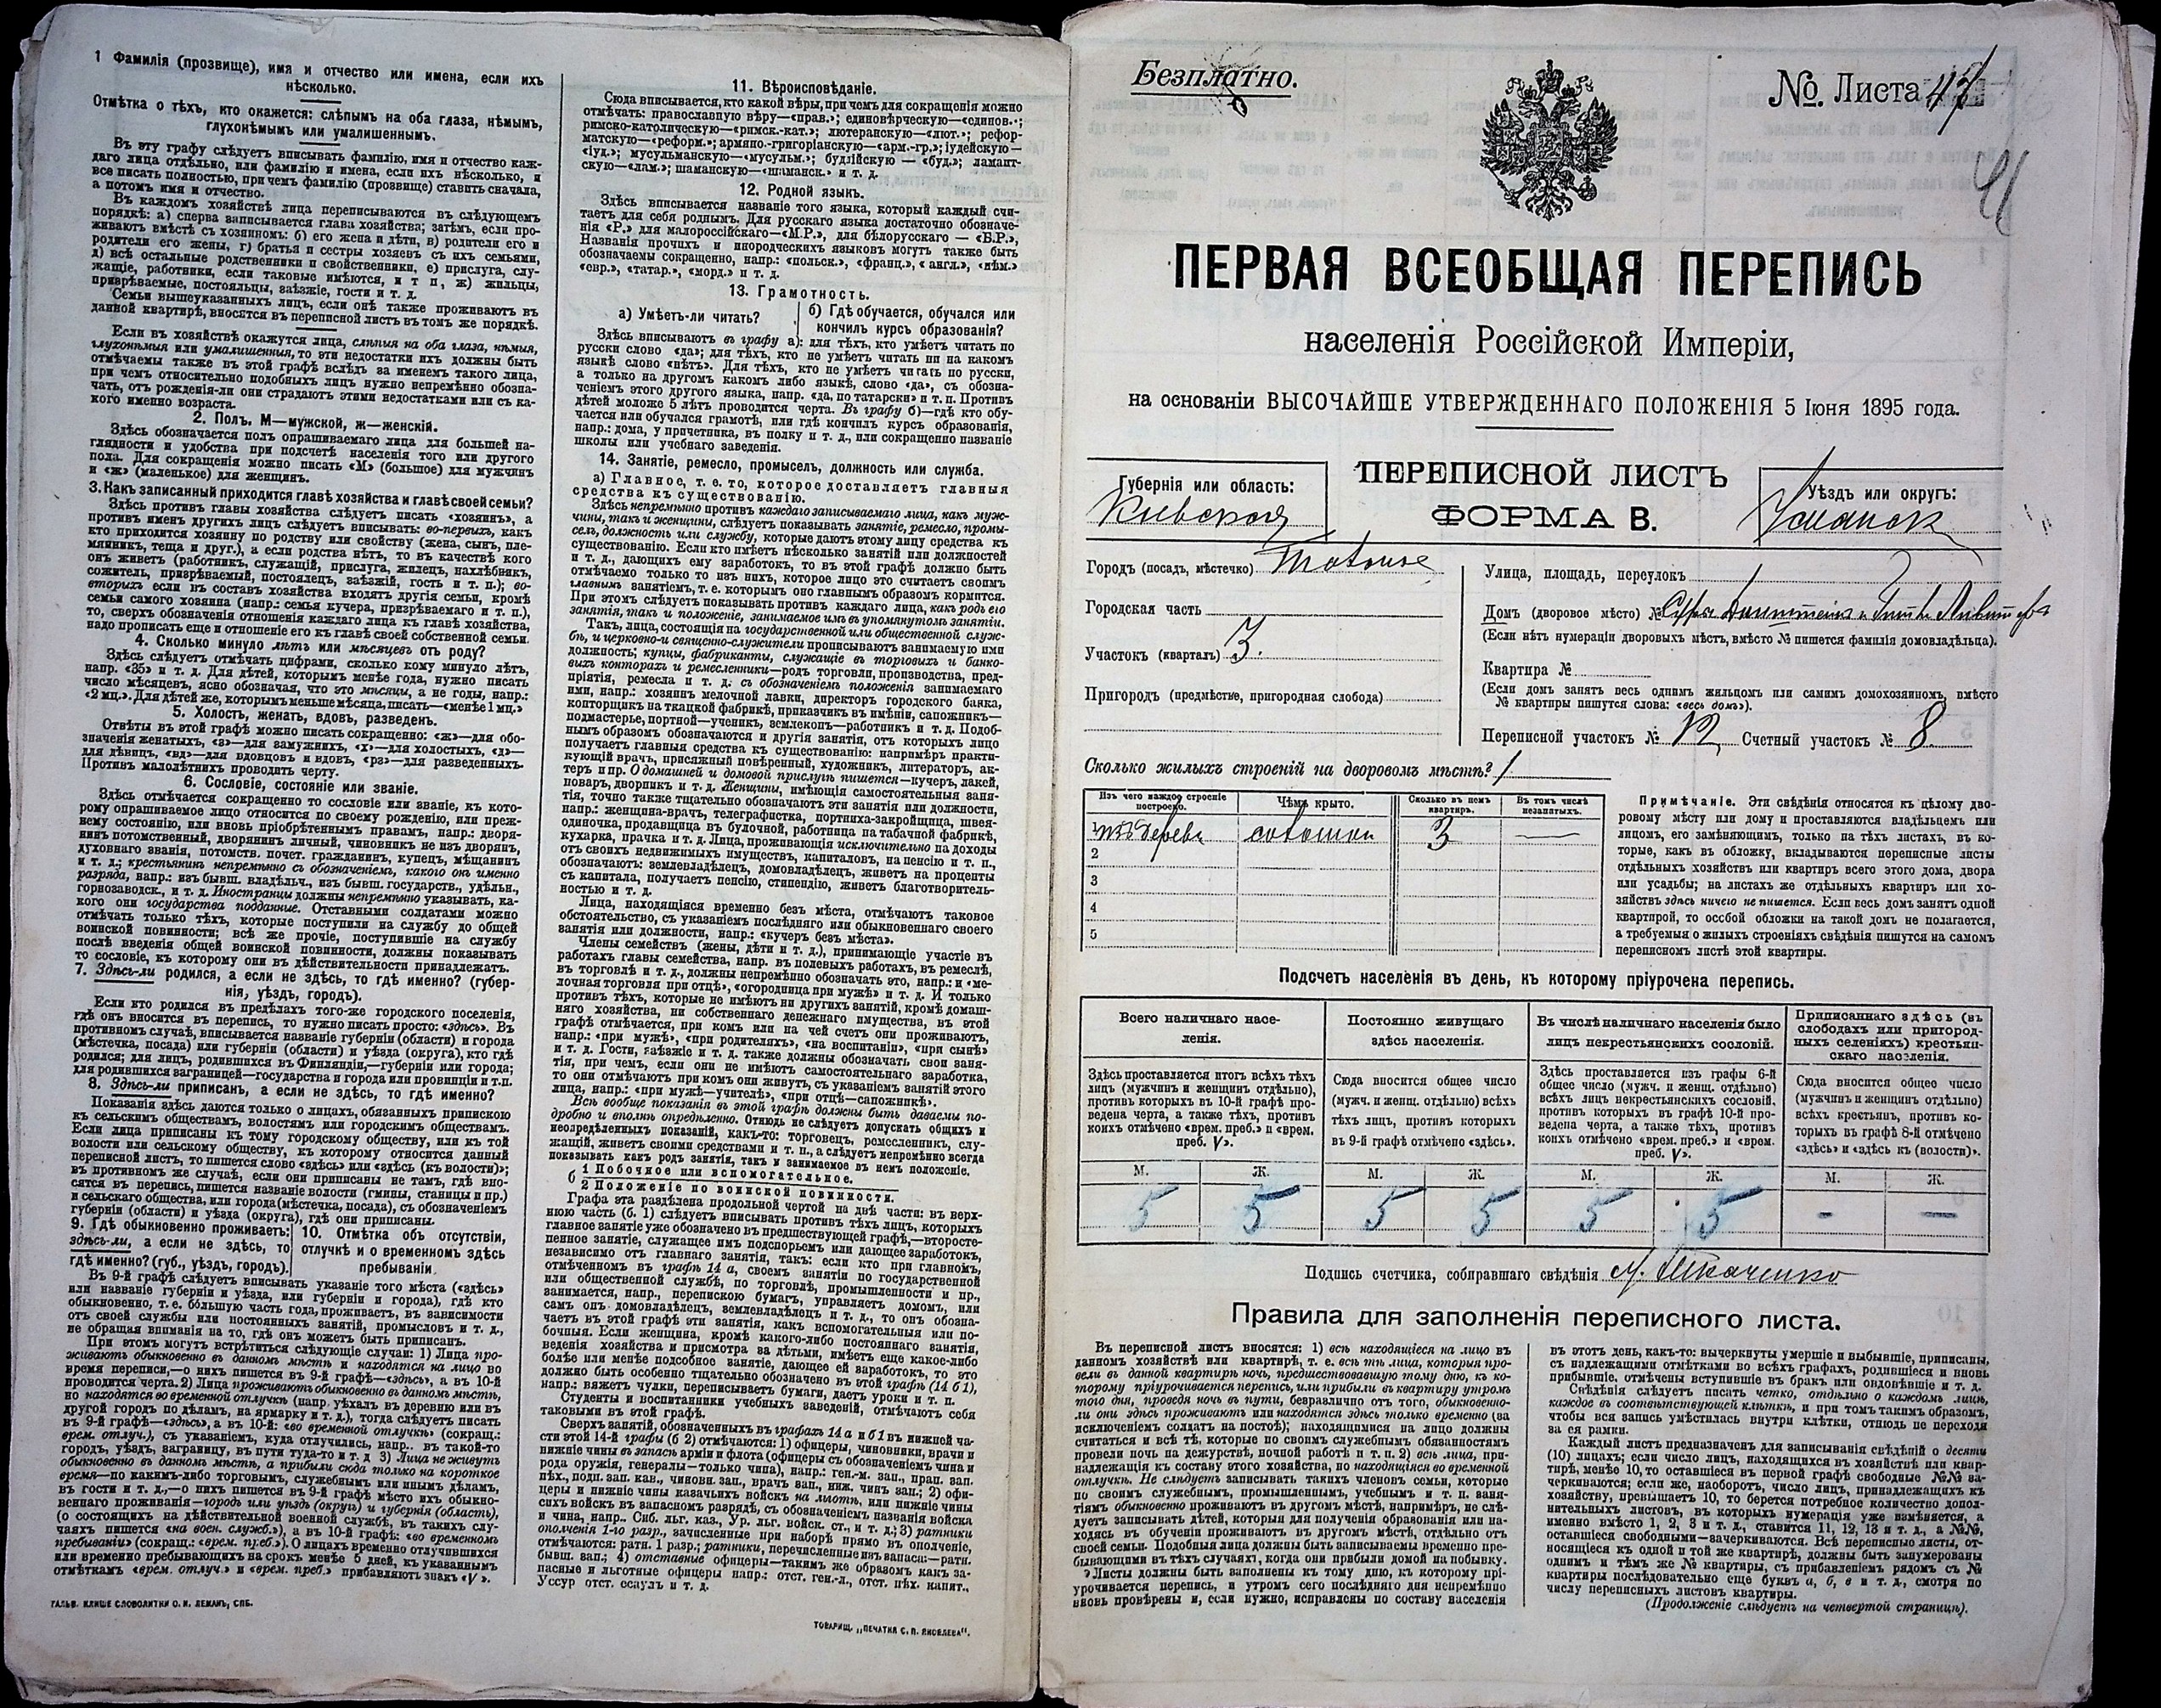 1 Фамилія (прозвище), имя и отчество или имена, если ихъ
нѣсколько.
Отмѣтка о тѣхъ, кто окажется: слѣпымъ на оба глаза, нѣмымъ,
глухонѣмымъ или умалишеннымъ.
Въ эту графу слѣдуетъ вписывать фамилію, имя и отчество каж-
даго лица отдѣльно, или фамилію и имена, если ихъ нѣсколько, и
все писать полностью, при чемъ фамилію (прозвище) ставить сначала,
а потомъ имя и отчество.
Въ каждомъ хозяйствѣ лица переписываются въ слѣдующемъ
порядкѣ: а) сперва записывается глава хозяйства; затѣмъ, если про-
живаютъ вмѣстѣ съ хозяиномъ: б) его жена и дѣти, в) родители его и
родители его жены, г) братья и сестры хозяевъ съ ихъ семьями,
д) всѣ остальные родственники и свойственники, е) прислуга, слу-
жащіе, работники, если таковые имѣются, и т п, ж) жильцы,
призрѣваемые, постояльцы, заѣзжіе, гости и т. д.
Семьи вышеуказанныхъ лицъ, если онѣ также проживаютъ въ
данной квартирѣ, вносятся въ переписной листъ въ томъ же порядкѣ.
Если въ хозяйствѣ окажутся лица, слѣпыя на оба глаза, нѣмыя,
глухонѣмыя или умалишенныя, то эти недостатки ихъ должны быть
отмѣчаемы также въ этой графѣ вслѣдъ за именемъ такого лица,
при чемъ относительно подобныхъ лицъ нужно непремѣнно обозна-
чать, отъ рожденія-ли они страдаютъ этими недостатками или съ ка-
кого именно возраста.
2. Полъ. М—мужской, ж—женскій.
Здѣсь обозначается полъ опрашиваемаго лица для большей на-
глядности и удобства при подсчетѣ населенія того или другого
пола. Для сокращенія можно писать «М» (большое) для мужчинъ
и «ж» (маленькое) для женщинъ.
3. Какъ записанный приходится главѣ хозяйства и главѣ своей семьи?
Здѣсь противъ главы хозяйства слѣдуетъ писать «хозяинъ», а
противъ именъ другихъ лицъ слѣдуетъ вписывать: во-первыхъ, какъ
кто приходится хозяину по родству или свойству (жена, сынъ, пле-
мянникъ, теща и друг.), а если родства нѣтъ, то въ качествѣ кого
онъ живетъ (работникъ, служащій, прислуга, жилецъ, нахлѣбникъ,
сожитель, призрѣваемый, постоялецъ, заѣзжій, гость и т. п.); во-
вторыхъ если въ составъ хозяйства входятъ другія семьи, кромѣ
семьи самого хозяина (напр.: семья кучера, призрѣваемаго и т. п.),
то, сверхъ обозначенія отношенія каждаго лица къ главѣ хозяйства,
надо прописать еще и отношеніе его къ главѣ своей собственной семьи.
4. Сколько минуло лѣтъ или мѣсяцевъ отъ роду?
Здѣсь слѣдуетъ отмѣчать цифрами, сколько кому минуло лѣтъ,
напр. «35» и т. д. Для дѣтей, которымъ менѣе года, нужно писать
число мѣсяцевъ, ясно обозначая, что это мѣсяцы, а не годы, напр.:
«2 мц.». Для дѣтей же, которымъ меньше мѣсяца, писать—«менѣе 1 мц.»
5. Холостъ, женатъ, вдовъ, разведенъ.
Отвѣты въ этой графѣ можно писать сокращенно: «ж»—для обо-
значенія женатыхъ, «з»—для замужнихъ, «х»—для холостыхъ, «д»—
для дѣвицъ, «вд»—для вдовцовъ и вдовъ, «рз»—для разведенныхъ.
Противъ малолѣтнихъ проводить черту.
6. Сословіе, состояніе или званіе.
Здѣсь отмѣчается сокращенно то сословіе или званіе, къ кото-
рому опрашиваемое лицо относится по своему рожденію, или преж-
нему состоянію, или вновь пріобрѣтеннымъ правамъ, напр.: дворя-
нинъ потомственный, дворянинъ личный, чиновникъ не изъ дворянъ,
духовнаго званія, потомств. почет. гражданинъ, купецъ, мѣщанинъ
и т. д.; крестьянинъ непремѣнно съ обозначеніемъ, какого онъ именно
разряда, напр.: изъ бывш. владѣльч., изъ бывш. государств., удѣльн.,
горнозаводск., и т. д. Иностранцы должны непремѣнно указывать, ка-
кого они государства подданные. Отставными солдатами можно
отмѣчать только тѣхъ, которые поступили на службу до общей
воинской повинности; всѣ же прочіе, поступившіе на службу
послѣ введенія общей воинской повинности, должны показывать
то сословіе, къ которому они въ дѣйствительности принадлежатъ.
7. Здѣсь-ли родился, а если не здѣсь, то гдѣ именно? (губер-
нія, уѣздъ, городъ).
Если кто родился въ предѣлахъ того-же городского поселенія,
гдѣ онъ вносится въ перепись, то нужно писать просто: «здѣсь». Въ
противномъ случаѣ, вписывается названіе губерніи (области) и города
(мѣстечка, посада) или губерніи (области) и уѣзда (округа), кто гдѣ
родился; для лицъ, родившихся въ Финляндіи,—губерніи или города;
для родившихся заграницей—государства и города или провинціи и т.п.
8. Здѣсь-ли приписанъ, а если не здѣсь, то гдѣ именно?
Показанія здѣсь даются только о лицахъ, обязанныхъ припискою
къ сельскимъ обществамъ, волостямъ или городскимъ обществамъ.
Если лица приписаны къ тому городскому обществу, или къ той
волости или сельскому обществу, къ которому относится данный
переписной листъ, то пишется слово «здѣсь» или «здѣсь (къ волости)»;
въ противномъ же случаѣ, если они приписаны не тамъ, гдѣ вно-
сятся въ перепись, пишется названіе волости (гмины, станицы и пр.)
и сельскаго общества, или города (мѣстечка, посада), съ обозначеніемъ
губерніи (области) и уѣзда (округа), гдѣ они приписаны.
9. Гдѣ обыкновенно проживаетъ:
здѣсь-ли, а если не здѣсь, то
гдѣ именно? (губ., уѣздъ, городъ).
10. Отмѣтка объ отсутствіи,
отлучкѣ и о временномъ здѣсь
пребываніи
Въ 9-й графѣ слѣдуетъ вписывать указаніе того мѣста («здѣсь»
или названіе губерніи и уѣзда, или губерніи и города), гдѣ кто
обыкновенно, т. е. бо́льшую часть года, проживаетъ, въ зависимости
отъ своей службы или постоянныхъ занятій, промысловъ и т. д.,
не обращая вниманія на то, гдѣ онъ можетъ быть приписанъ.
При этомъ могутъ встрѣтиться слѣдующіе случаи: 1) Лица про-
живаютъ обыкновенно въ данномъ мѣстѣ и находятся на лицо во
время переписи,—о нихъ пишется въ 9-й графѣ—«здѣсь», а въ 10-й
проводится черта. 2) Лица проживаютъ обыкновенно въ данномъ мѣстѣ,
но находятся во временной отлучкѣ (напр. уѣхалъ въ деревню или въ
другой городъ по дѣламъ, на ярмарку и т. д.), тогда слѣдуетъ писать
въ 9-й графѣ—«здѣсь», а въ 10-й: «во временной отлучкѣ» (сокращ.:
врем. отлуч.), съ указаніемъ, куда отлучились, напр.. въ такой-то
городъ, уѣздъ, заграницу, въ пути туда-то и т. д 3) Лица не живутъ
обыкновенно въ данномъ мѣстѣ, а прибыли сюда только на короткое
время—по какимъ-либо торговымъ, служебнымъ или инымъ дѣламъ,
въ гости и т. д.,—о нихъ пишется въ 9-й графѣ мѣсто ихъ обыкно-
веннаго проживанія—городъ или уѣздъ (округъ) и губернія (область),
(о состоящихъ на дѣйствительной военной службѣ, въ такихъ слу-
чаяхъ пишется «на воен. службѣ.»), а въ 10-й графѣ: «во временномъ
пребываніи» (сокращ.: «врем. преб.»). О лицахъ временно отлучившихся
или временно пребывающихъ на срокъ менѣе 5 дней, къ указаннымъ
отмѣткамъ «врем. отлуч.» и «врем. преб.» прибавляютъ знакъ «V».
ГАЛЬВ. КЛИШЕ СЛОВОЛИТНИ О. И. ЛЕМАНЪ, СПБ.
11. Вѣроисповѣданіе.
Сюда вписывается, кто какой вѣры, при чемъ для сокращенія можно
отмѣчать: православную вѣру—«прав.»; единовѣрческую—«единов.»;
римско-католическую—«римск.-кат.»; лютеранскую—«лют.»; рефор-
матскую—«реформ.»; армяно.-григоріанскую—«арм.-гр.»; іудейскую—
«іуд.»; мусульманскую—«мусульм.»; буддійскую — «буд.»; ламаит-
скую—«лам.»; шаманскую—«шаманск.» и т. д.
12. Родной языкъ.
Здѣсь вписывается названіе того языка, который каждый счи-
таетъ для себя роднымъ. Для русскаго языка достаточно обозначе-
нія «Р.» для малороссійскаго—«М.Р.», для бѣлорусскаго — «Б.Р.»,
Названія прочихъ и инородческихъ языковъ могутъ также быть
обозначаемы сокращенно, напр.: «польск.», «франц.», « англ.», «нѣм.»
«евр.», «татар.», «морд.» и т. д.
13. Грамотность.
а) Умѣетъ-ли читать?
б) Гдѣ обучается, обучался или
кончилъ курсъ образованія?
Здѣсь вписываютъ въ графу а): для тѣхъ, кто умѣетъ читать по
русски слово «да»; для тѣхъ, кто не умѣетъ читать ни на какомъ
языкѣ слово «нѣтъ». Для тѣхъ, кто не умѣетъ читать по русски,
а только на другомъ какомъ либо языкѣ, слово «да», съ обозна-
ченіемъ этого другого языка, напр. «да, по татарски» и т. п. Противъ
дѣтей моложе 5 лѣтъ проводится черта. Въ графу б)—гдѣ кто обу-
чается или обучался грамотѣ, или гдѣ кончилъ курсъ образованія,
напр.: дома, у причетника, въ полку и т. д., или сокращенно названіе
школы или учебнаго заведенія.
14. Занятіе, ремесло, промыселъ, должность или служба.
а) Главное, т. е. то, которое доставляетъ главныя
средства къ существованію.
Здѣсь непремѣнно противъ каждаго записываемаго лица, какъ муж-
чины, такъ и женщины, слѣдуетъ показывать занятіе, ремесло, промы-
селъ, должность или службу, которые даютъ этому лицу средства къ
существованію. Если кто имѣетъ нѣсколько занятій или должностей
и т. д., дающихъ ему заработокъ, то въ этой графѣ должно быть
отмѣчаемо только то изъ нихъ, которое лицо это считаетъ своимъ
главнымъ занятіемъ, т. е. которымъ оно главнымъ образомъ кормится.
При этомъ слѣдуетъ показывать противъ каждаго лица, какъ родъ его
занятія, такъ и положеніе, занимаемое имъ въ упомянутомъ занятіи.
Такъ, лица, состоящія на государственной или общественной служ-
бѣ, и церковно-и священно-служители прописываютъ занимаемую ими
должность; купцы, фабриканты, служащіе въ торговыхъ и банко-
выхъ конторахъ и ремесленники—родъ торговли, производства, пред-
пріятія, ремесла и т. д. съ обозначеніемъ положенія занимаемаго
ими, напр.: хозяинъ мелочной лавки, директоръ городского банка,
конторщикъ на ткацкой фабрикѣ, приказчикъ въ имѣніи, сапожникъ—
подмастерье, портной—ученикъ, землекопъ—работникъ и т. д. Подоб-
нымъ образомъ обозначаются и другія занятія, отъ которыхъ лицо
получаетъ главныя средства къ существованію: напримѣръ практи-
кующій врачъ, присяжный повѣренный, художникъ, литераторъ, ак-
теръ и пр. О домашней и домовой прислугѣ пишется—кучеръ, лакей,
поваръ, дворникъ и т. д. Женщины, имѣющія самостоятельныя заня-
тія, точно также тщательно обозначаютъ эти занятія или должности,
напр.: женщина-врачъ, телеграфистка, портниха-закройщица, швея-
одиночка, продавщица въ булочной, работница на табачной фабрикѣ,
кухарка, прачка и т. д. Лица, проживающія исключительно на доходы
отъ своихъ недвижимыхъ имуществъ, капиталовъ, на пенсію и т. п.,
обозначаютъ: землевладѣлецъ, домовладѣлецъ, живетъ на проценты
съ капитала, получаетъ пенсію, стипендію, живетъ благотворитель-
ностью и т. д.
Лица, находящіяся временно безъ мѣста, отмѣчаютъ таковое
обстоятельство, съ указаніемъ послѣдняго или обыкновеннаго своего
занятія или должности, напр.: «кучеръ безъ мѣста».
Члены семействъ (жены, дѣти и т. д.), принимающіе участіе въ
работахъ главы семейства, напр. въ полевыхъ работахъ, въ ремеслѣ,
въ торговлѣ и т. д., должны непремѣнно обозначать это, напр.: и «ме-
лочная торговля при отцѣ», «огородница при мужѣ» и т. д. И только
противъ тѣхъ, которые не имѣютъ ни другихъ занятій, кромѣ домаш-
няго хозяйства, ни собственнаго денежнаго имущества, въ этой
графѣ отмѣчается, при комъ или на чей счетъ они проживаютъ,
напр.: «при мужѣ», «при родителяхъ», «на воспитаніи», «при сынѣ»
и т. д. Гости, заѣзжіе и т. д. также должны обозначать свои заня-
тія, при чемъ, если они не имѣютъ самостоятельнаго заработка,
то они отмѣчаютъ при комъ они живутъ, съ указаніемъ занятій этого
лица, напр.: «при мужѣ—учителѣ», «при отцѣ—сапожникѣ».
Всѣ вообще показанія въ этой графѣ должны быть даваемы по-
дробно и вполнѣ опредѣленно. Отнюдь не слѣдуетъ допускать общихъ и
неопредѣленныхъ показаній, какъ-то: торговецъ, ремесленникъ, слу-
жащій, живетъ своими средствами и т. п., а слѣдуетъ непремѣнно всегда
показывать какъ родъ занятія, такъ и занимаемое въ немъ положеніе.
б 1 Побочное или вспомогательное.
2 Положеніе по воинской повинности.
Графа эта раздѣлена продольной чертой на двѣ части: въ верх-
нюю часть (б. 1) слѣдуетъ вписывать противъ тѣхъ лицъ, которыхъ
главное занятіе уже обозначено въ предшествующей графѣ,—второсте-
пенное занятіе, служащее имъ подспорьемъ или дающее заработокъ,
независимо отъ главнаго занятія, такъ: если кто при главномъ,
отмѣченномъ въ графѣ 14 а, своемъ занятіи по государственной
или общественной службѣ, по торговлѣ, промышленности и пр.,
занимается, напр., перепискою бумагъ, управляетъ домомъ, или
самъ онъ домовладѣлецъ, землевладѣлецъ и т. д., то онъ обозна-
чаетъ въ этой графѣ эти занятія, какъ вспомогательныя или по-
бочныя. Если женщина, кромѣ какого-либо постояннаго занятія,
веденія хозяйства и присмотра за дѣтьми, имѣетъ еще какое-либо
болѣе или менѣе подсобное занятіе, дающее ей заработокъ, то это
должно быть особенно тщательно обозначено въ этой графѣ (14 б 1),
напр.: вяжетъ чулки, переписываетъ бумаги, даетъ уроки и т. п.
Студенты и воспитанники учебныхъ заведеній, отмѣчаютъ себя
таковыми въ этой графѣ.
Сверхъ занятій, обозначенныхъ въ графахъ 14 а и б 1 въ нижней ча-
сти этой 14-й графы (б 2) отмѣчаются: 1) офицеры, чиновники, врачи и
нижніе чины въ запасѣ арміи и флота (офицеры съ обозначеніемъ чина и
рода оружія, генералы—только чина), напр.: ген-м. зап., прап. зап.
пѣх., подп. зап. кав., чиновн. зап., врачъ зап., ниж. чинъ зап.; 2) офи-
церы и нижніе чины казачьихъ войскъ на льготѣ, или нижніе чины
сихъ войскъ въ запасномъ разрядѣ, съ обозначеніемъ названія войска
и чина, напр.. Сиб. льг. каз., Ур. льг. войск. ст., и т. д.; 3) ратники
ополченія 1-го разр., зачисленные при наборѣ прямо въ ополченіе,
отмѣчаются: ратн. 1 разр.; ратники, перечисленные изъ запаса:—ратн.
бывш. зап.; 4) отставные офицеры—такимъ же образомъ какъ за-
пасные и льготные офицеры напр.: отст. ген.-л., отст. пѣх. капит.,
Уссур отст. есаулъ и т. д.
ТОВАРИЩ. „ПЕЧАТНЯ С. П. ЯКОВЛЕВА“.
Безплатно.
№. Листа 47
ПЕРВАЯ ВСЕОБЩАЯ ПЕРЕПИСЬ
населенія Россійской Имперіи,
на основаніи ВЫСОЧАЙШЕ УТВЕРЖДЕННАГО ПОЛОЖЕНІЯ 5 Іюня 1895 года.
Губернія или область:
Кіевская
ПЕРЕПИСНОЙ ЛИСТЪ
ФОРМА В.
Уѣздъ или округъ:
Уманск
Городъ (посадъ, мѣстечко)
Городская часть
Участокъ (кварталъ) 3.
Пригородъ (предмѣстье, пригородная слобода)
Улица, площадь, переулокъ
Домъ (дворовое мѣсто) №
(Если нѣтъ нумераціи дворовыхъ мѣстъ, вмѣсто № пишется фамилія домовладѣльца).
Квартира №
(Если домъ занятъ весь однимъ жильцомъ или самимъ домохозяиномъ, вмѣсто
№ квартиры пишутся слова: «весь домъ»).
Переписной участокъ № 12, Счетный участокъ № 8
Сколько жилыхъ строеній на дворовомъ мѣстѣ? 1
Изъ чего каждое строеніе построено.
Чѣмъ крыто.
Сколько въ немъ квартиръ.
Въ томъ числѣ незанятыхъ.
1 изъ дерева соломою 3 —
2
3
4
5
Примѣчаніе. Эти свѣдѣнія относятся къ цѣлому дво-
ровому мѣсту или дому и проставляются владѣльцемъ или
лицомъ, его замѣняющимъ, только на тѣхъ листахъ, въ ко-
торые, какъ въ обложку, вкладываются переписные листы
отдѣльныхъ хозяйствъ или квартиръ всего этого дома, двора
или усадьбы; на листахъ же отдѣльныхъ квартиръ или хо-
зяйствъ здѣсь ничего не пишется. Если весь домъ занятъ одной
квартирой, то особой обложки на такой домъ не полагается,
а требуемыя о жилыхъ строеніяхъ свѣдѣнія пишутся на самомъ
переписномъ листѣ этой квартиры.
Подсчетъ населенія въ день, къ которому пріурочена перепись.
Всего наличнаго насе-
ленія.
Постоянно живущаго
здѣсь населенія.
Въ числѣ наличнаго населенія было
лицъ некрестьянскихъ сословій.
Приписаннаго здѣсь (въ
слободахъ или пригород-
ныхъ селеніяхъ) крестьян-
скаго населенія.
Здѣсь проставляется итогъ всѣхъ тѣхъ
лицъ (мужчинъ и женщинъ отдѣльно),
противъ которыхъ въ 10-й графѣ про-
ведена черта, а также тѣхъ, противъ
коихъ отмѣчено «врем. преб.» и «врем.
преб. V».
Сюда вносится общее число
(мужч. и женщ. отдѣльно) всѣхъ
тѣхъ лицъ, противъ которыхъ
въ 9-й графѣ отмѣчено «здѣсь».
Здѣсь проставляется изъ графы 6-й
общее число (мужч. и женщ. отдѣльно)
всѣхъ лицъ некрестьянскихъ сословій,
противъ которыхъ въ графѣ 10-й про-
ведена черта, а также тѣхъ, противъ
коихъ отмѣчено «врем. преб.» и «врем.
преб. V».
Сюда вносится общее число
(мужчинъ и женщинъ отдѣльно)
всѣхъ крестьянъ, противъ ко-
торыхъ въ графѣ 8-й отмѣчено
«здѣсь» и «здѣсь къ (волости)».
М. Ж. М. Ж. М. Ж. М. Ж.
5 5 5 5 5 5 — —
Подпись счетчика, собиравшаго свѣдѣнія
Правила для заполненія переписного листа.
Въ переписной листъ вносятся: 1) всѣ находящіеся на лицо въ
данномъ хозяйствѣ или квартирѣ, т. е. всѣ тѣ лица, которыя про-
вели въ данной квартирѣ ночь, предшествовавшую тому дню, къ ко-
торому пріурочивается перепись, или прибыли въ квартиру утромъ
того дня, проведя ночь въ пути, безразлично отъ того, обыкновенно-
ли они здѣсь проживаютъ или находятся здѣсь только временно (за
исключеніемъ солдатъ на постоѣ); находящимися на лицо должны
считаться и всѣ тѣ, которые по своимъ служебнымъ обязанностямъ
провели ночь на дежурствѣ, ночной работѣ и т. п. 2) всѣ лица, при-
надлежащія къ составу этого хозяйства, но находящіяся во временной
отлучкѣ. Не слѣдуетъ записывать такихъ членовъ семьи, которые
по своимъ служебнымъ, промышленнымъ, учебнымъ и т. п. заня-
тіямъ обыкновенно проживаютъ въ другомъ мѣстѣ, напримѣръ, не слѣ-
дуетъ записывать дѣтей, которыя для полученія образованія или на-
ходясь въ обученіи проживаютъ въ другомъ мѣстѣ, отдѣльно отъ
своей семьи. Подобныя лица должны быть записываемы временно пре-
бывающими въ тѣхъ случаяхъ, когда они прибыли домой на побывку.
Листы должны быть заполнены къ тому дню, къ которому прі-
урочивается перепись, и утромъ сего послѣдняго дня непремѣнно
вновь провѣрены и, если нужно, исправлены по составу населенія
въ этотъ день, какъ-то: вычеркнуты умершіе и выбывшіе, приписаны,
съ надлежащими отмѣтками во всѣхъ графахъ, родившіеся и вновь
прибывшіе. отмѣчены вступившіе въ бракъ или овдовѣвшіе и т. д.
Свѣдѣнія слѣдуетъ писать четко, отдѣльно о каждомъ лицѣ,
каждое въ соотвѣтствующей клѣткѣ, и при томъ такимъ образомъ,
чтобы вся запись умѣстилась внутри клѣтки, отнюдь не переходя
за ея рамки.
Каждый листъ предназначенъ для записыванія свѣдѣній о десяти
(10) лицахъ; если число лицъ, находящихся въ хозяйствѣ или квар-
тирѣ, менѣе 10, то оставшіеся въ первой графѣ свободные №№ за-
черкиваются; если же, наоборотъ, число лицъ, принадлежащихъ къ
хозяйству, превышаетъ 10, то берется потребное количество допол-
нительныхъ листовъ, въ которыхъ нумерація уже измѣняется, а
именно вмѣсто 1, 2, 3 и т. д., ставится 11, 12, 13 и т. д., а №№,
оставшіеся свободными—зачеркиваются. Всѣ переписные листы, от-
носящіеся къ одной и той же квартирѣ, должны быть занумерованы
однимъ и тѣмъ же № квартиры, съ прибавленіемъ рядомъ съ №
квартиры послѣдовательно еще буквъ а, б, в и т. д., смотря по
числу переписныхъ листовъ квартиры.
(Продолженіе слѣдуетъ на четвертой страницѣ).